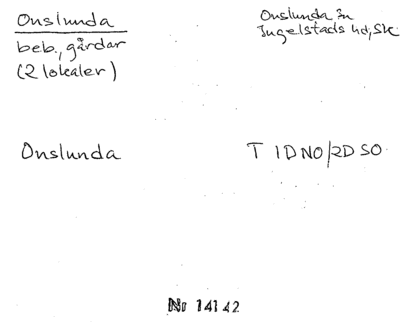 Onslunda
beb., gårdar
(2 lokaler)
Onslunda sn
Ingelstads hd, Sk.
Onslunda
T 1D NO/2D SO
Nr 14142